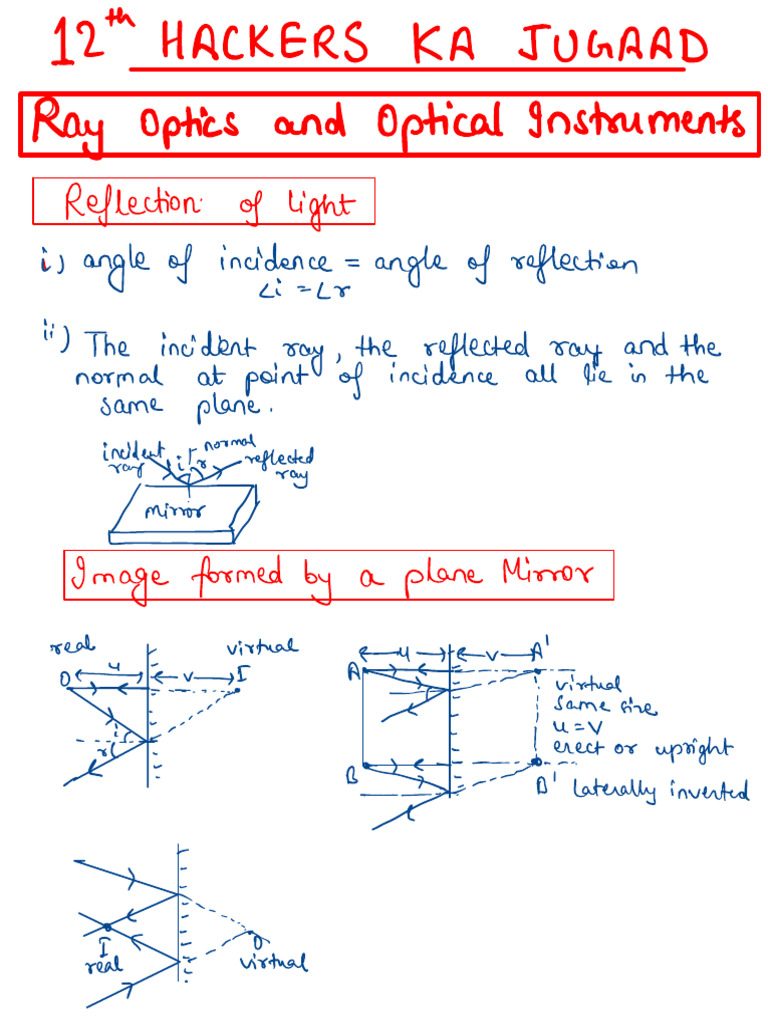 12th HACKERS KA JUGAAD
Ray Optics and Optical Instruments
Reflection of light
i) angle of incidence = angle of reflection
∠i = ∠r
ii) The incident ray, the reflected ray and the
normal at point of incidence all lie in the
same plane.
incident ray
i
r
normal
reflected ray
mirror
Image formed by a plane Mirror
real
virtual
O
u
v
I
i
r
u
v
A
A'
B
B'
virtual
same size
u = v
erect or upright
laterally inverted
I
real
O
virtual